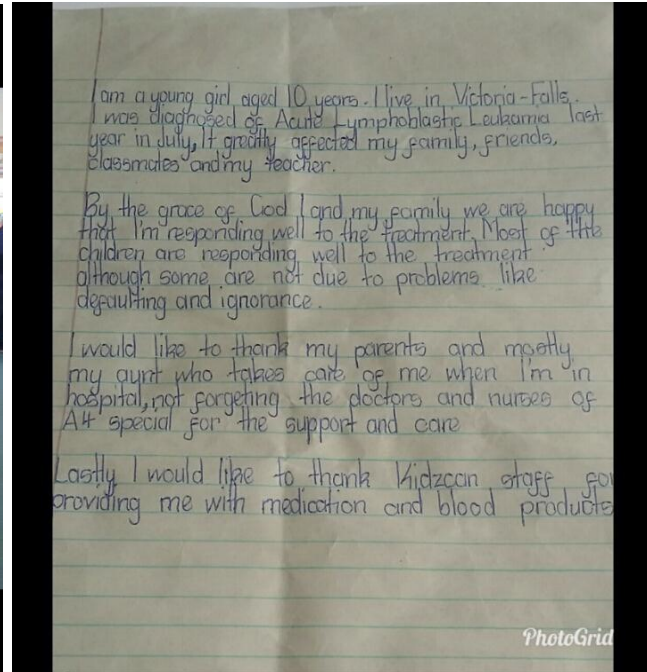 I am a young girl aged 10 years. I live in Victoria-Falls.
I was diagnosed of Acute Lymphoblastic Leukamia last
year in July, It greatly affected my family, friends,
classmates and my teacher.
By the grace of God I and my family we are happy
that I'm responding well to the treatment. Most of the
children are responding well to the treatment
although some are not due to problems like
defaulting and ignorance.
I would like to thank my parents and mostly
my aunt who takes care of me when I'm in
hospital, not forgeting the doctors and nurses of
A4 special for the support and care
Lastly I would like to thank Kidzcan staff for
providing me with medication and blood products
PhotoGrid